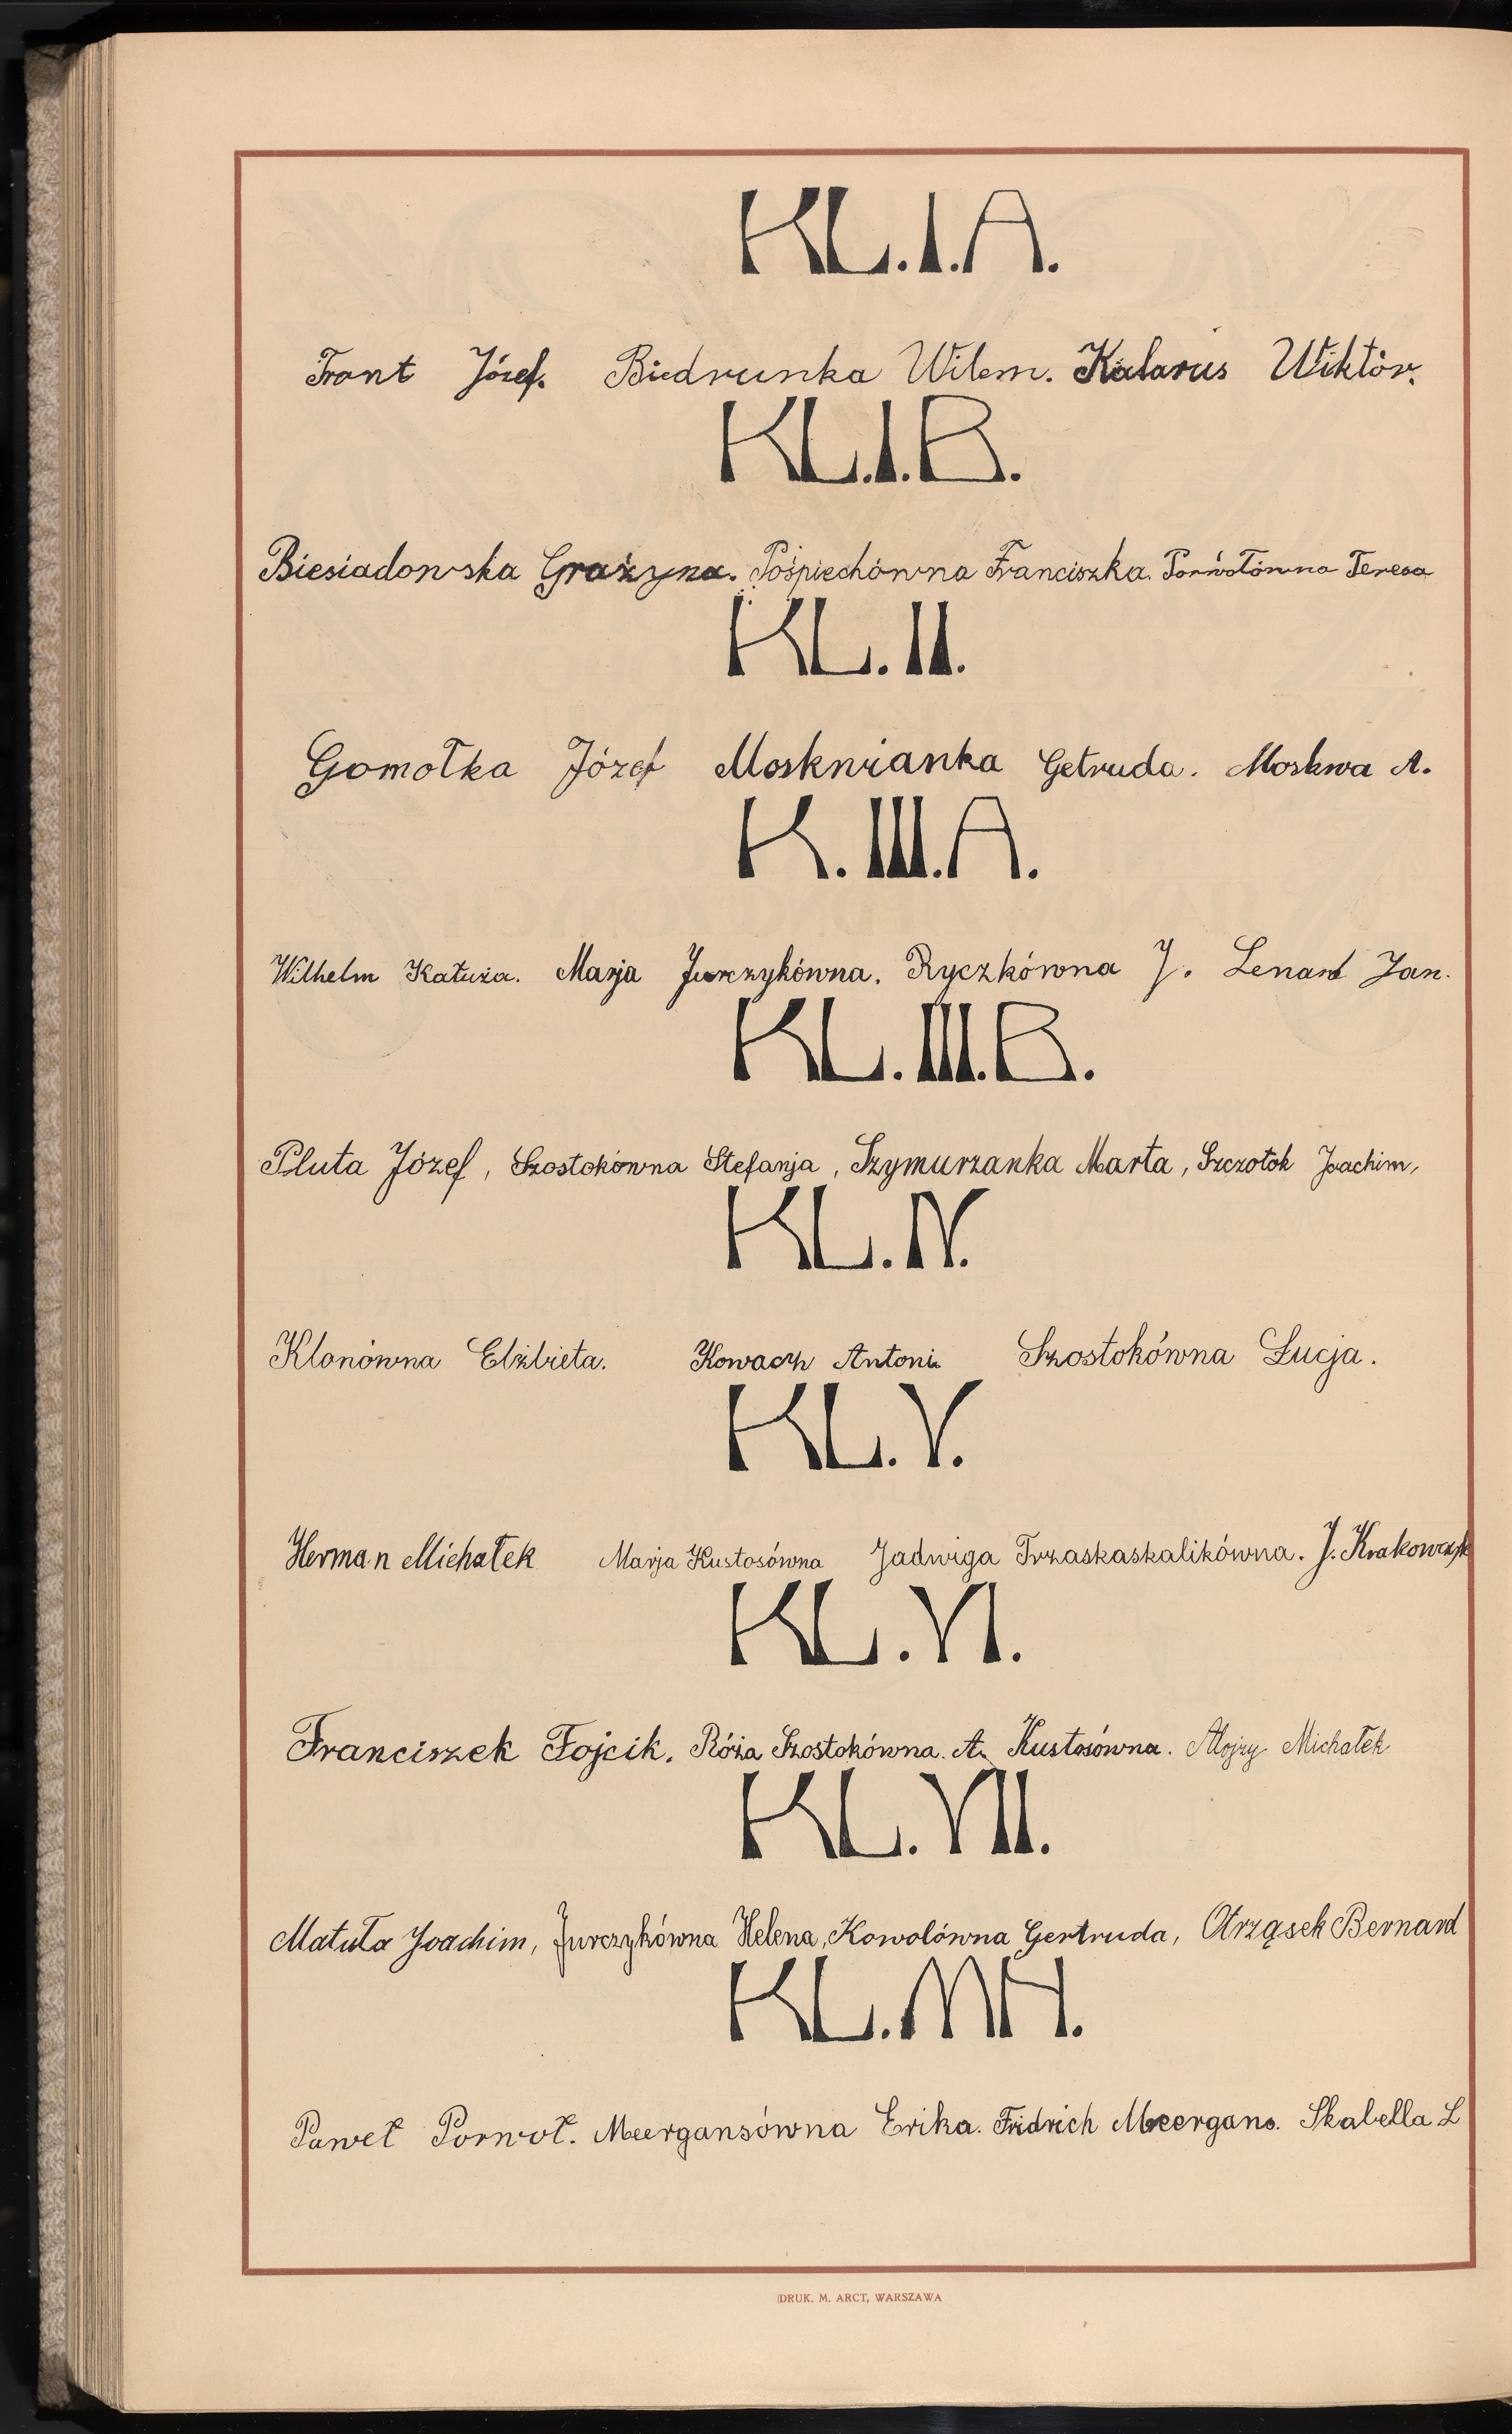 KL.I.A.
Front Józef. Biedrunka Wilem. Kalarus Wiktór.
KL.I.B.
Biesiadowska Grażyna. Pośpiechówna Franciszka. Porwołówna Teresa
KL.II.
Gomołka Józef Moskwianka Getruda. Moskwa A.
K.III.A.
Wilhelm Katuża. Marja Jurczykówna. Ryczkówna J. Lenard Jan.
KL.III.B.
Pluta Józef, Szostokówna Stefanja, Szymurzanka Marta, Szczotok Joachim,
KL.IV.
Klonówna Elżbieta. Kowach Antoni. Szostokówna Łucja.
KL.V.
Herman Michałek Marja Kustosówna Jadwiga Trzaskaskalikówna. J. Krakowczyk
KL.VI.
Franciszek Fojcik. Róża Szostokówna. A. Kustosówna. Alojzy Michałek
KL.VII.
Matuła Joachim, Jurczykówna Helena, Kowolówna Gertruda, Otrząsek Bernard
KL.MH.
Paweł Porwoł. Meergansówna Erika. Fridrich Meergans. Skabella L
DRUK. M. ARCT, WARSZAWA